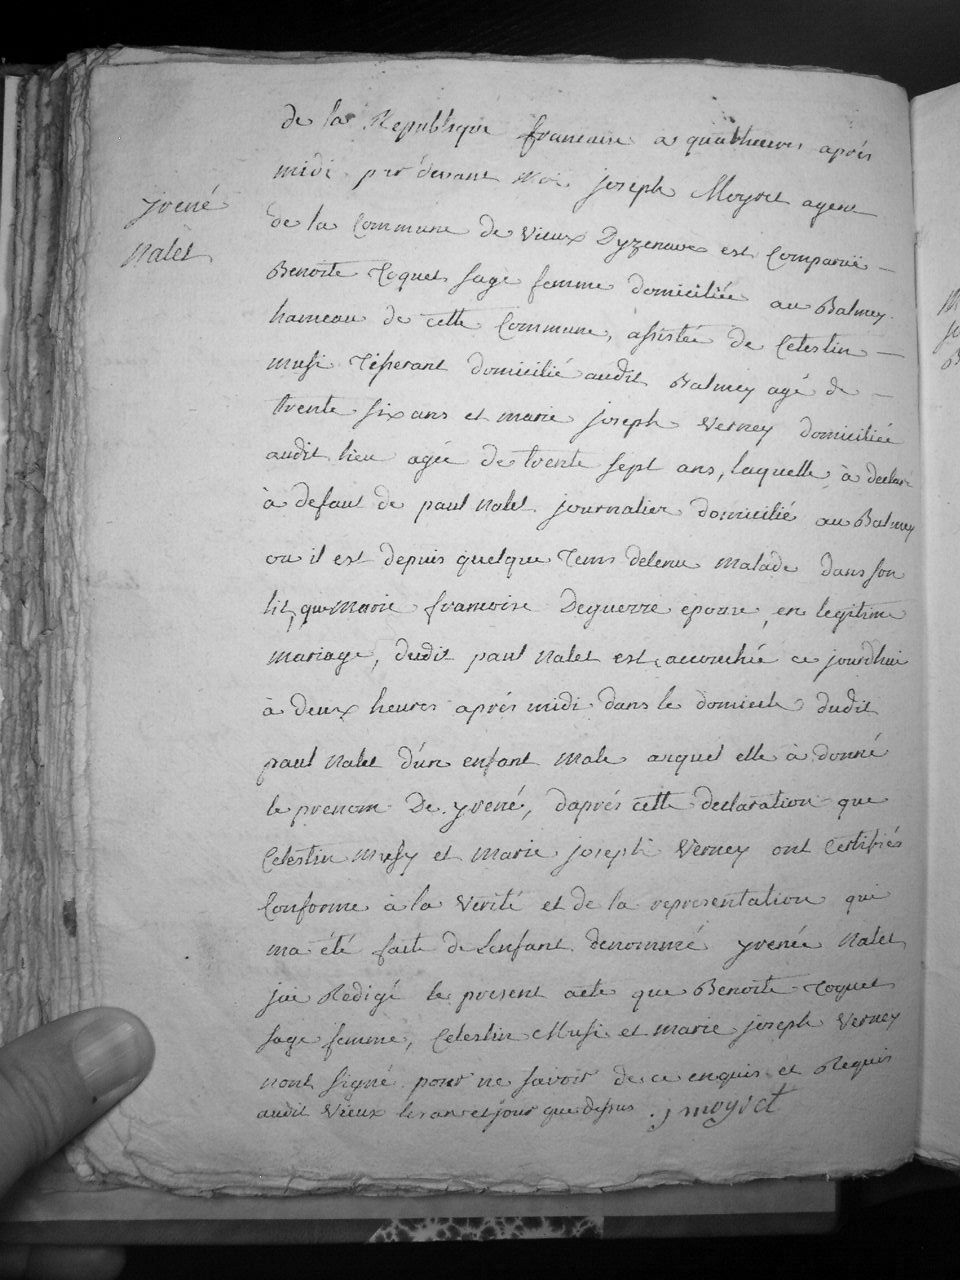 de la Republique francaise a quatrheures après
midi par devant Moi joseph Moyret agent
yrené
de la Commune de Vieux Dyzenave est Comparuë
Nalet
Benoite Coquet sage femme domiciliée au Balmey
hameau de cette Commune, assistée de Celestin
musi Tisserant domicilié audit Balmey agé de
trente six ans et marie joseph Verney domiciliée
audit lieu agée de trente sept ans, laquelle à declaré
à defaut de paul Nalet journalier domicilié au Balmey
ou il est depuis quelque Tems detenu Malade dans son
lit, que Marie francoise Deguerre epouse, en legitime
mariage, dudit paul Nalet est accouchée ce jourdhui
à deux heures après midi dans le domicile dudit
paul Nalet d'un enfant Male auquel elle à donné
le prenom De yrené, daprés cette declaration que
Celestin Musy et Marie joseph Verney ont Certifiés
Conforme à la Verité et de la representation qui
ma été faite de Lenfant denommé yrenée Nalet
jai Redigé le present acte que Benoite Coquet
sage femme, Celestin Musi et marie joseph Verney
nont signé pour ne savoir de ce enquis et Requis
audit Vieux les an et jour que dessus . j moyret